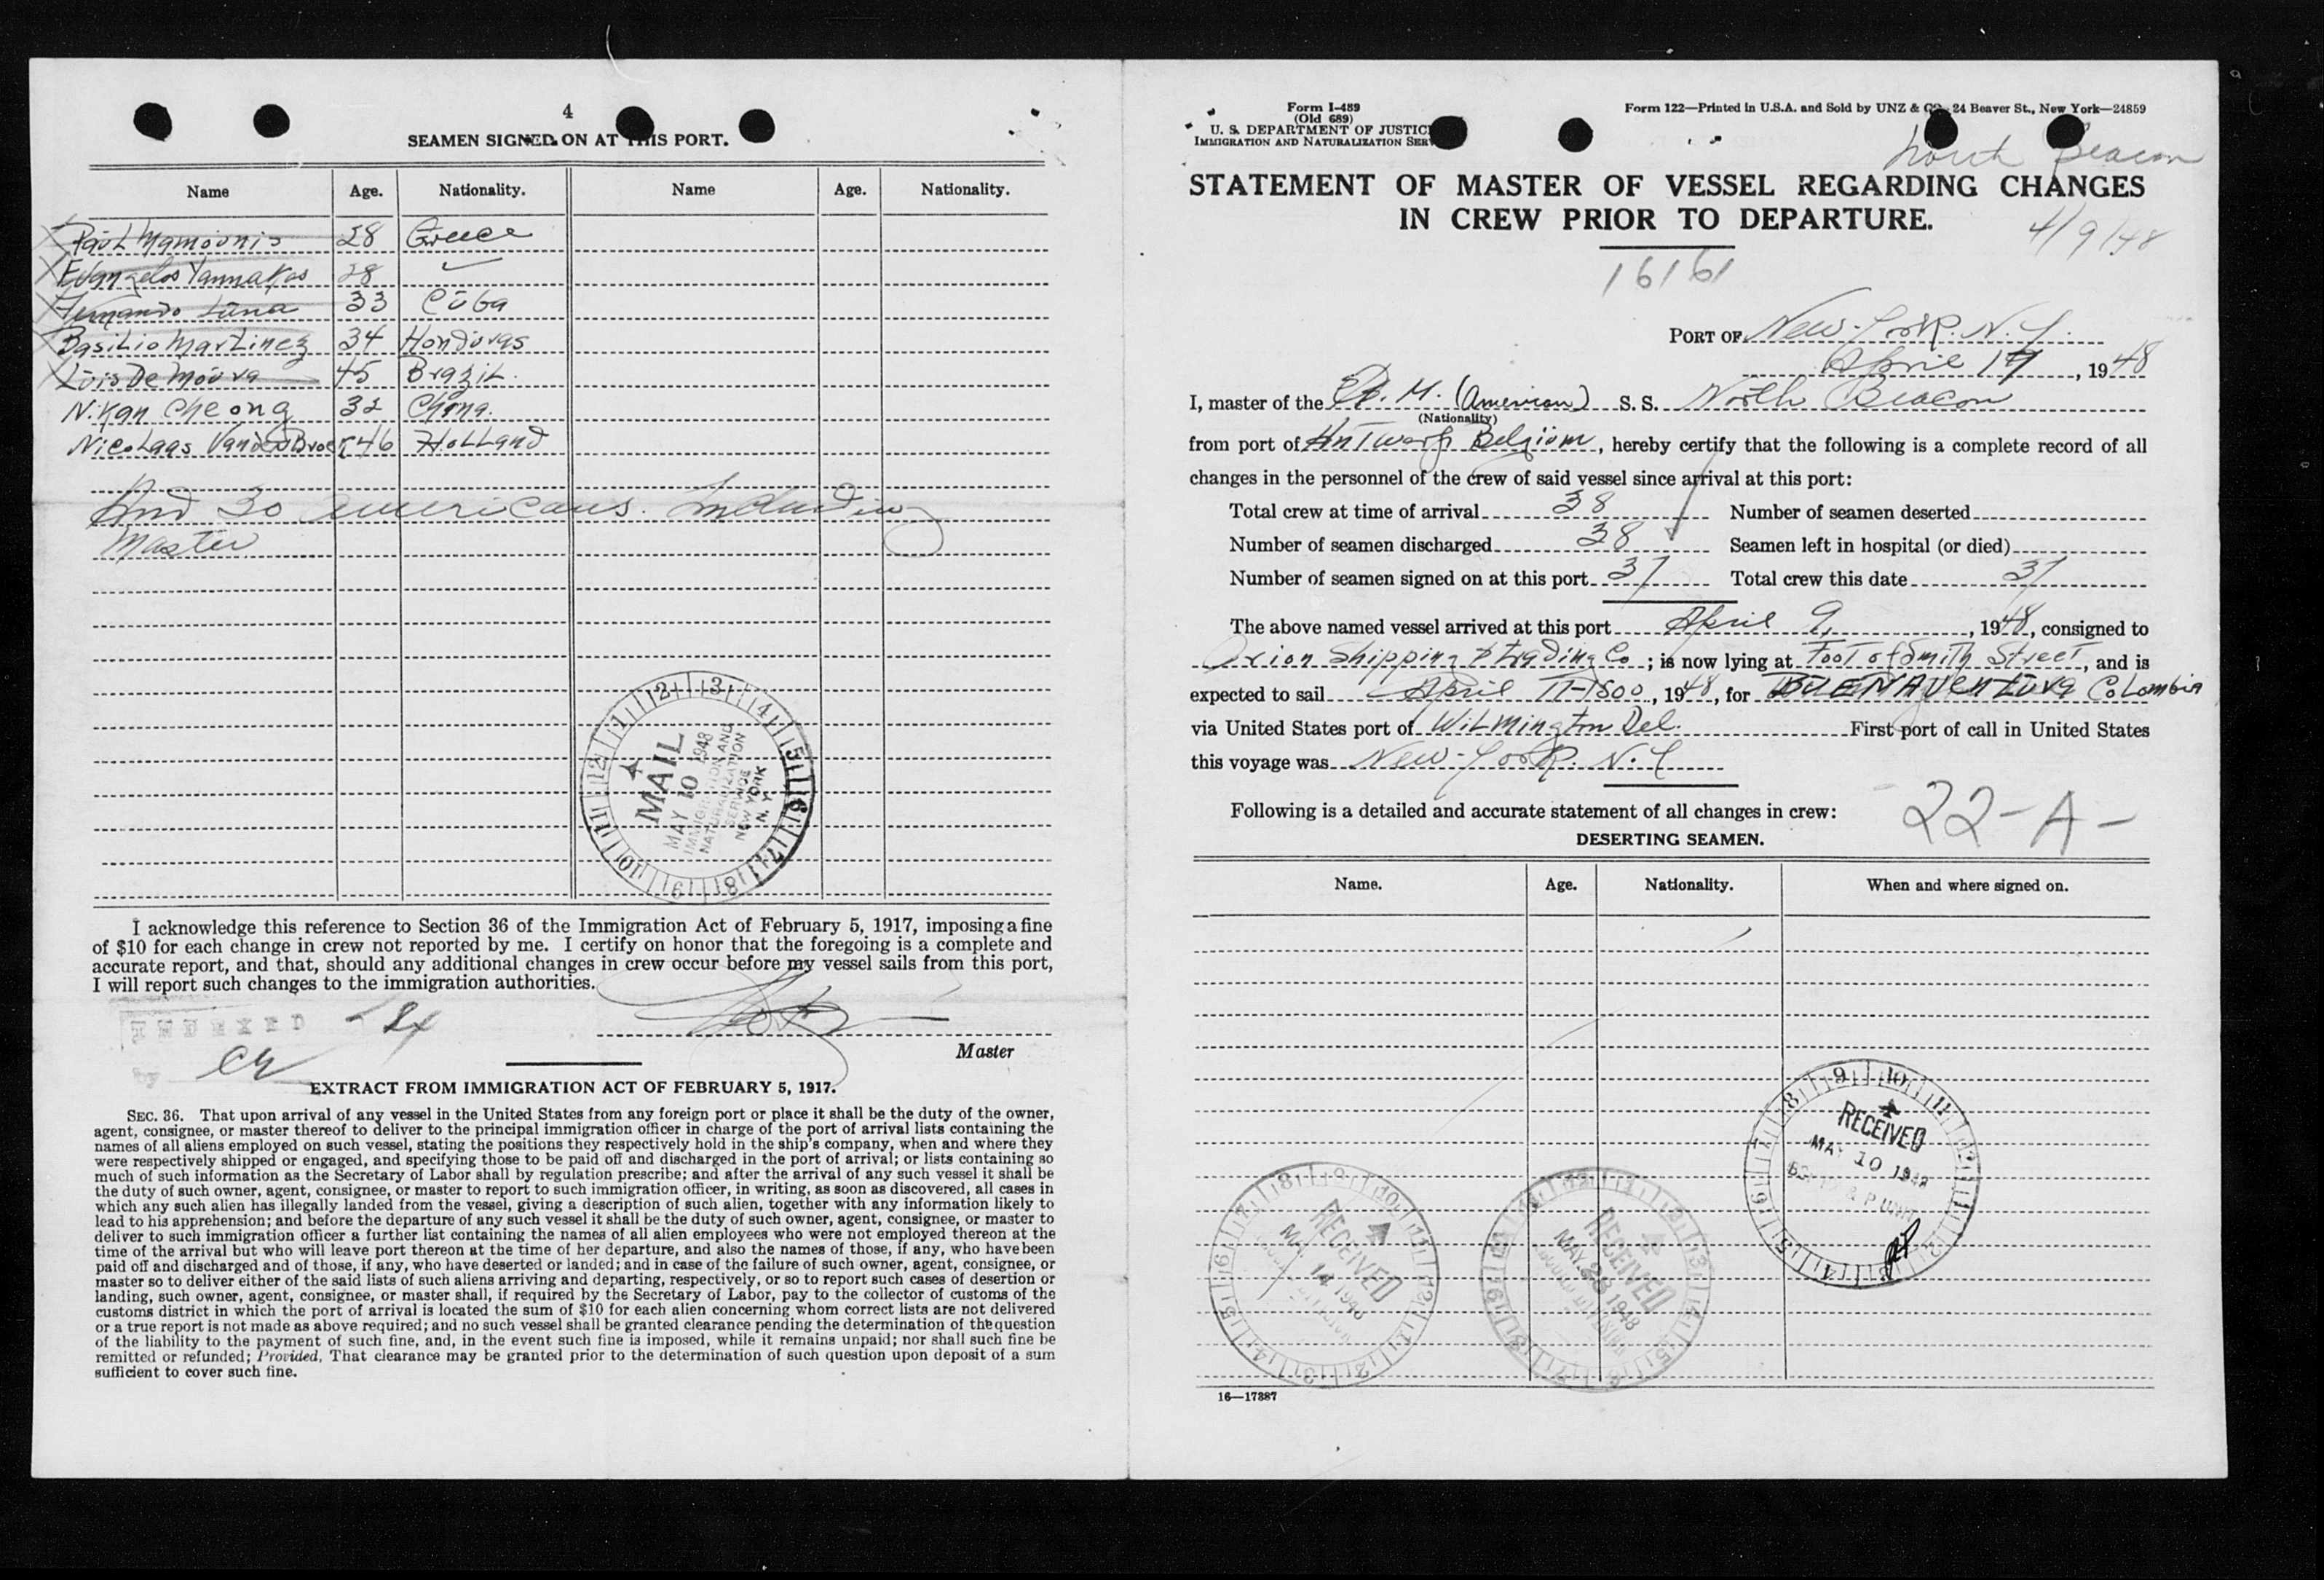 4
SEAMEN SIGNED ON AT THIS PORT.
Name Age. Nationality. Name Age. Nationality.
Paul Mamounis 28 Greece
Evangelos Yannakos 28 ✓
Fernando Luna 33 Cuba
Basilio Martinez 34 Honduras
Luis De Moura 45 Brazil.
N. Kan Cheong 32 China.
Nicolaas Vanden Broek 46 Holland
And 30 Americans. Including
Master
MAIL
MAY 10 1948
IMMIGRATION AND
NATURALIZATION
SERVICE
NEW YORK
N. Y.
I acknowledge this reference to Section 36 of the Immigration Act of February 5, 1917, imposing a fine
of $10 for each change in crew not reported by me. I certify on honor that the foregoing is a complete and
accurate report, and that, should any additional changes in crew occur before my vessel sails from this port,
I will report such changes to the immigration authorities.
INDEXED
by
Master
EXTRACT FROM IMMIGRATION ACT OF FEBRUARY 5, 1917.
SEC. 36. That upon arrival of any vessel in the United States from any foreign port or place it shall be the duty of the owner,
agent, consignee, or master thereof to deliver to the principal immigration officer in charge of the port of arrival lists containing the
names of all aliens employed on such vessel, stating the positions they respectively hold in the ship's company, when and where they
were respectively shipped or engaged, and specifying those to be paid off and discharged in the port of arrival; or lists containing so
much of such information as the Secretary of Labor shall by regulation prescribe; and after the arrival of any such vessel it shall be
the duty of such owner, agent, consignee, or master to report to such immigration officer, in writing, as soon as discovered, all cases in
which any such alien has illegally landed from the vessel, giving a description of such alien, together with any information likely to
lead to his apprehension; and before the departure of any such vessel it shall be the duty of such owner, agent, consignee, or master to
deliver to such immigration officer a further list containing the names of all alien employees who were not employed thereon at the
time of the arrival but who will leave port thereon at the time of her departure, and also the names of those, if any, who have been
paid off and discharged and of those, if any, who have deserted or landed; and in case of the failure of such owner, agent, consignee, or
master so to deliver either of the said lists of such aliens arriving and departing, respectively, or so to report such cases of desertion or
landing, such owner, agent, consignee, or master shall, if required by the Secretary of Labor, pay to the collector of customs of the
customs district in which the port of arrival is located the sum of $10 for each alien concerning whom correct lists are not delivered
or a true report is not made as above required; and no such vessel shall be granted clearance pending the determination of the question
of the liability to the payment of such fine, and, in the event such fine is imposed, while it remains unpaid; nor shall such fine be
remitted or refunded; Provided, That clearance may be granted prior to the determination of such question upon deposit of a sum
sufficient to cover such fine.
Form I-489
(Old 689)
U. S. DEPARTMENT OF JUSTICE
IMMIGRATION AND NATURALIZATION SERV
Form 122—Printed in U.S.A. and Sold by UNZ & CO. 24 Beaver St., New York—24859
North Beacon
STATEMENT OF MASTER OF VESSEL REGARDING CHANGES
IN CREW PRIOR TO DEPARTURE.
4/9/48
16161
PORT OF New-York. N.Y.
April 17, 1948
I, master of the (American) S. S. North Beacon
(Nationality)
from port of Antwerp Belgium, hereby certify that the following is a complete record of all
changes in the personnel of the crew of said vessel since arrival at this port:
Total crew at time of arrival 38 Number of seamen deserted
Number of seamen discharged 38 Seamen left in hospital (or died)
Number of seamen signed on at this port 37 Total crew this date 37
The above named vessel arrived at this port April 9, 1948, consigned to
Orion Shipping & Trading Co; is now lying at Foot of Smith Street, and is
expected to sail April 17-1800, 1948, for BUENAVENTURA Colombia
via United States port of Wilmington Del. First port of call in United States
this voyage was New-York. N.Y
Following is a detailed and accurate statement of all changes in crew:
22-A-
DESERTING SEAMEN.
Name. Age. Nationality. When and where signed on.
RECEIVED
MAY 10 1948
RECEIVED
MAY 14 1948
RECEIVED
MAY 28 1948
16—17387